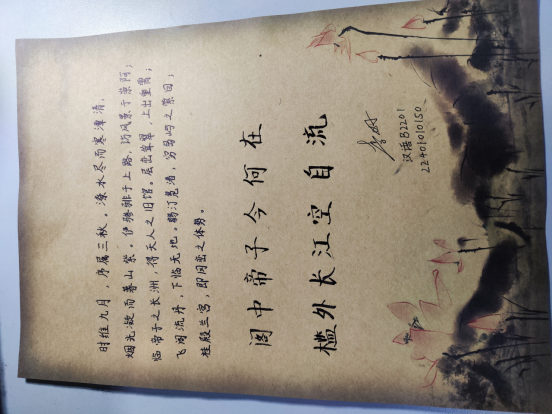 时维九月，序属三秋。潦水尽而寒潭清，
烟光凝而暮山紫。俨骖騑于上路，访风景于崇阿；
临帝子之长洲，得天人之旧馆。层峦耸翠，上出重霄；
飞阁流丹，下临无地。鹤汀凫渚，穷岛屿之萦回；
桂殿兰宫，即冈峦之体势。
阁中帝子今何在
槛外长江空自流
汉语B2201
22401010150